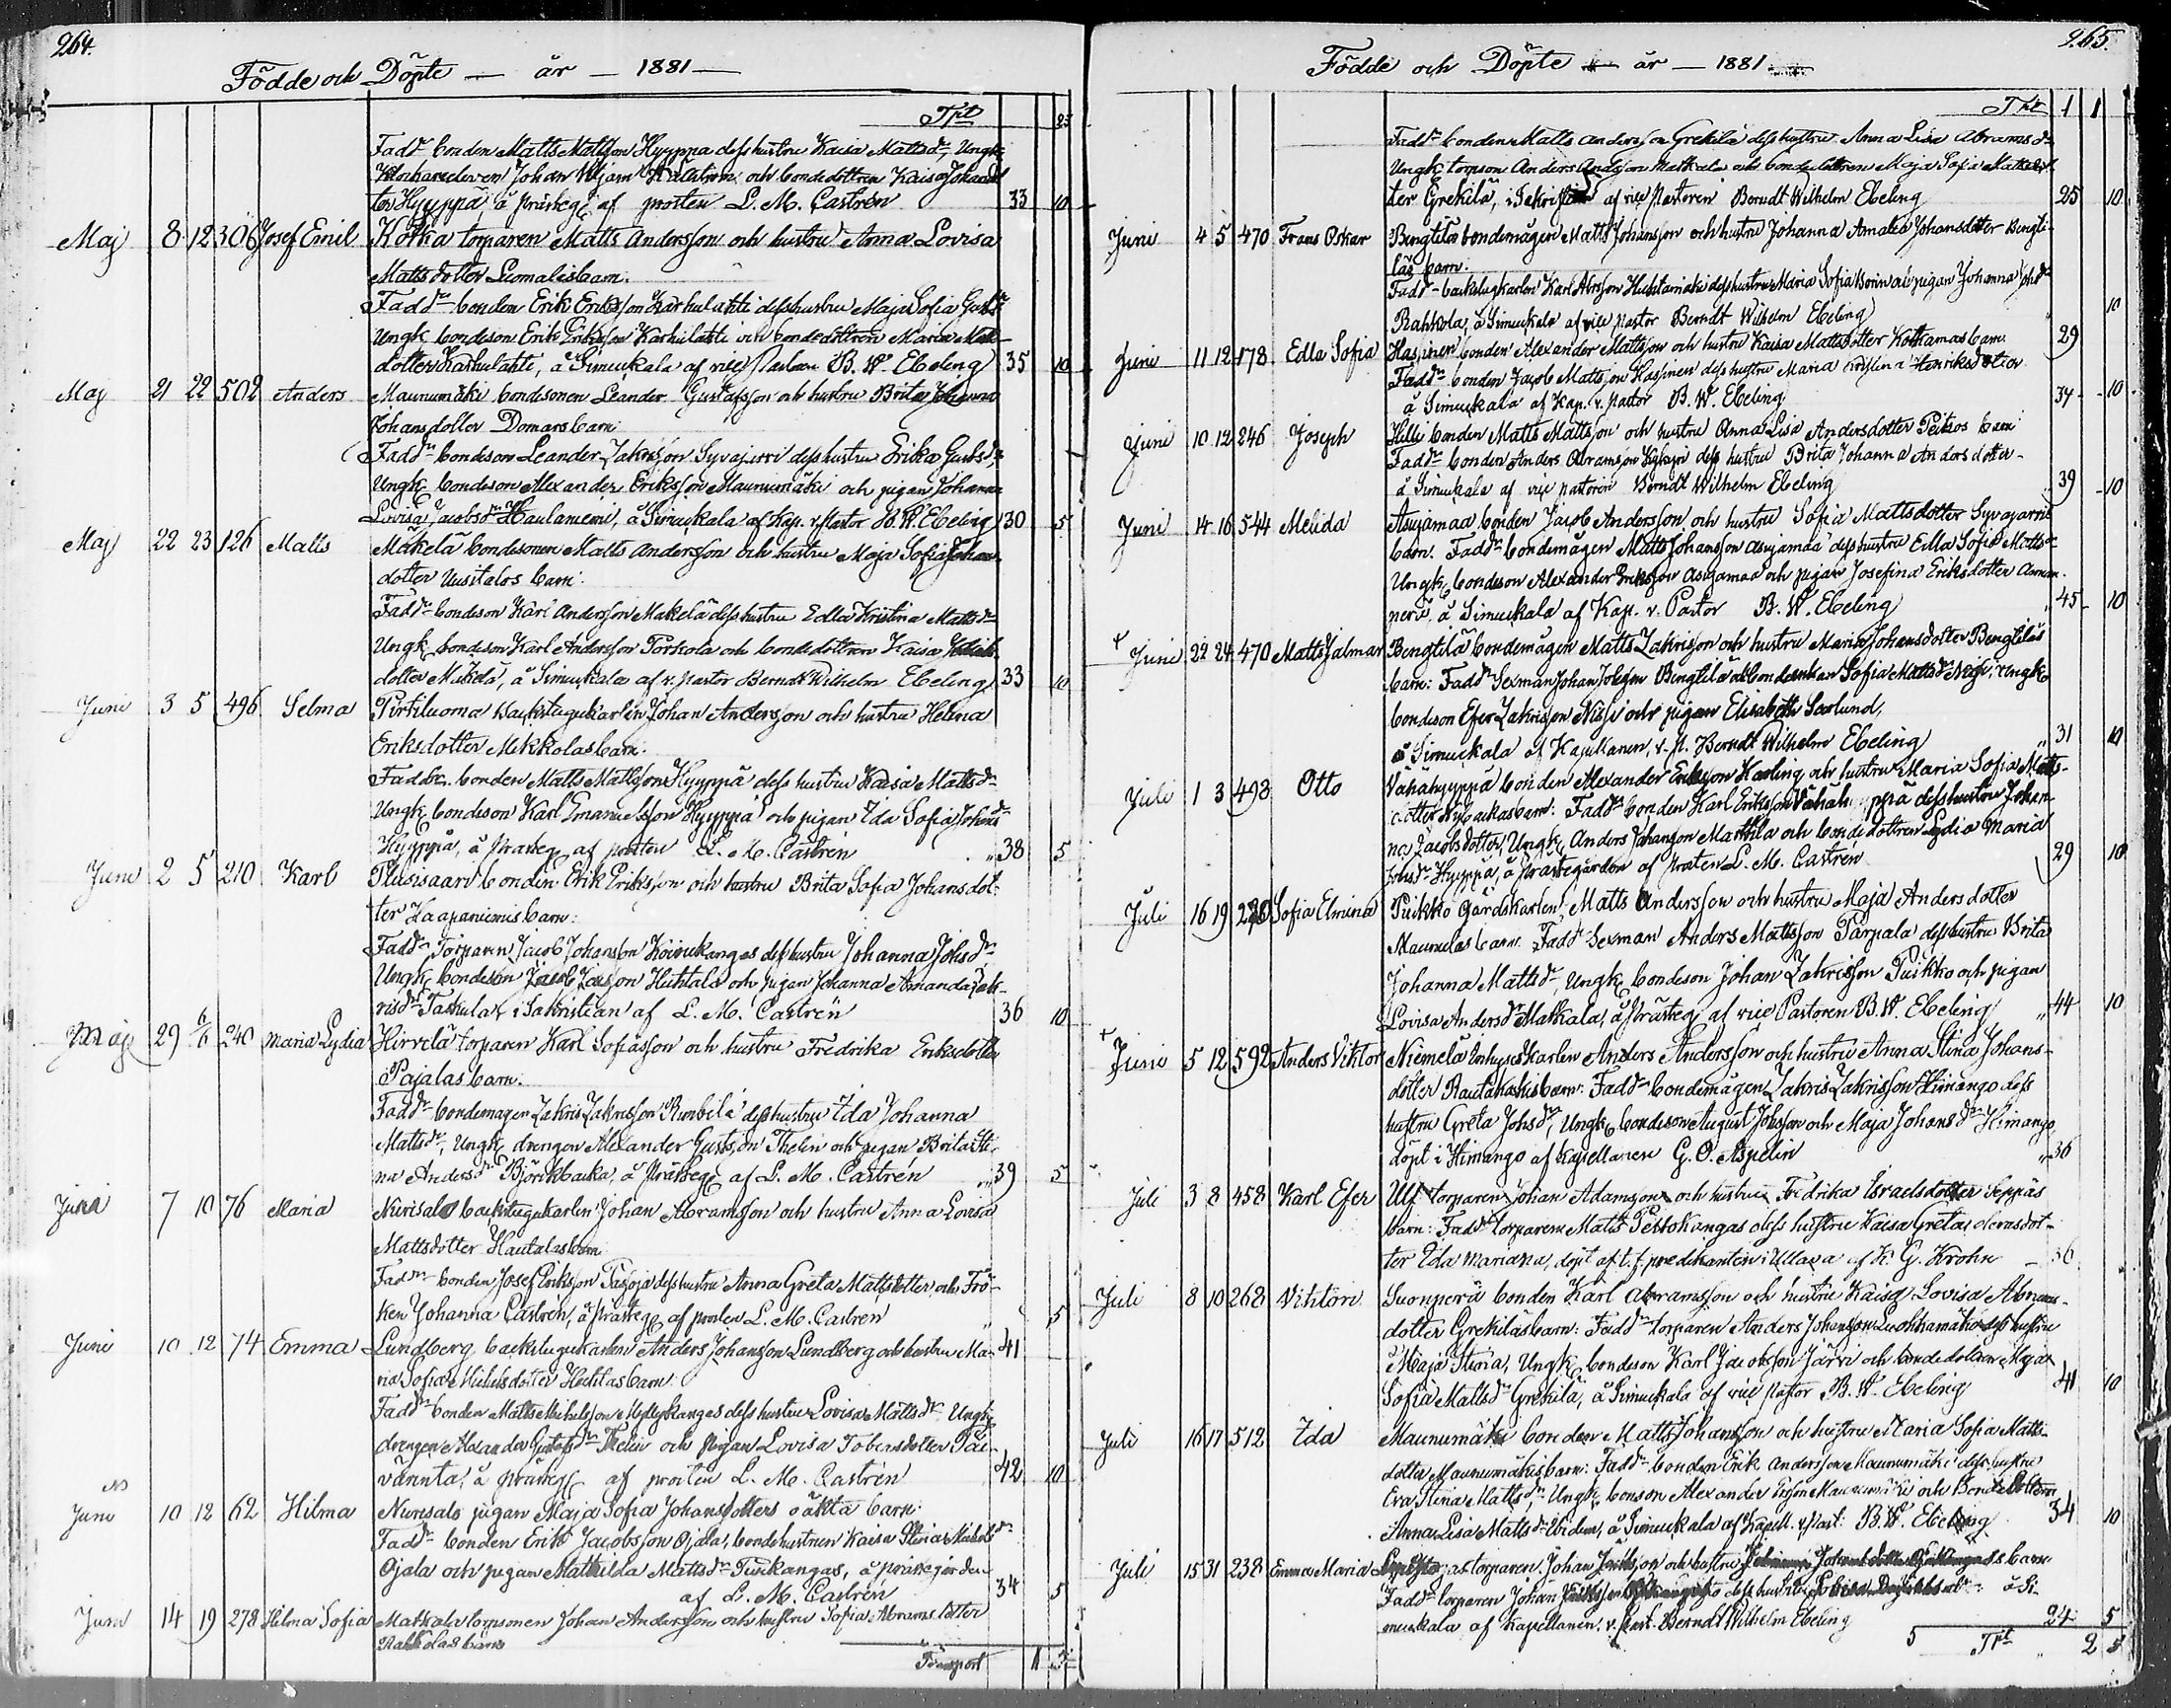 264.
Födde och Döpte — år — 1881 —
Tpt 25
Fadd: bonden Matts Mattsson Hyyppä dess hustru Kaisa Mattsdr, Ungk.
Johan och bondedottren Kaisa Johansdot-
ter Hyyppä, å Prästeg. af prosten L. M. Castrén 33 10
Maj 8 12 306 Josef Emil Kotka torparen Matts Andersson och hustru Anna Lovisa
Mattsdotter Luomalas barn.
Fadd: bonden Erik Eriksson Karhulahti dess hustru Maja Sofia Gustdr
Ungk. bondeson Erik Eriksson Karhulahti och bondedottren Maria Matts-
dotter Karhulahti, å Simuckala af vice Pastorn B. W. Ebeling 35 10
Maj 21 22 502 Anders Maunumäki bondesonen Leander Gustafsson och hustru Brita Johanna
Johansdotter Domars barn
Fadd: bondeson Leander Zakrisson Syväjärvi dess hustru Erika Gustsdr,
Ungk. bondeson Alexander Eriksson Maunumäki och pigan Johanna
Lovisa Jacobsdr Hautaniemi, å Simuckala af Kap. v. Pastor B. W. Ebeling 30 5
Maj 22 23 126 Matts Mäkelä bondesonen Matts Andersson och hustru Maja Sofia Johans-
dotter Uusitalos barn.
Fadd: bondeson Karl Andersson Mäkelä dess hustru Edla Kristina Mattsdr
Ungk. bondeson Karl Andersson Torkola och bondedottren Kaisa
dotter Mäkelä, å Simuckala af v. Pastor Berndt Wilhelm Ebeling 33 10
Juni 3 5 496 Selma Pirttiluoma backstugukarlen Johan Andersson och hustru Helena
Eriksdotter Mekkolas barn.
Fadd: bonden Matts Mattsson Hyyppä dess hustru Kaisa Mattsdr
Ungk. bondeson Karl Emanuelsson Hyyppä och pigan Ida Sofia Johansdr
Hyyppä, å Prästeg. af prosten L. M. Castrén „ 38 5
Juni 2 5 210 Karl Plusisaari bonden Erik Eriksson och hustru Brita Sofia Johansdot-
ter Haapaniemis barn:
Fadd: Torparen Jacob Johansson Koivukangas dess hustru Johanna Johsdr
Ungk. bondeson Jacob Huhtala och pigan Johanna Amanda Zak-
risdr Taskula, i Sakristian af L. M. Castrén 36 10
Maj 29 6/6 240 Maria Lydia Hirvelä torparen Karl Sofiasson och hustru Fredrika Eriksdotter
Pajalas barn.
Fadd: bondemågen Zakris Zakrisson Rimbilä dess hustru Ida Johanna
Mattsdr, Ungk. drengen Alexander Gustsson Thelin och pigan Brita Sti-
na Andersdr Björkbacka, å Prästeg. af L. M. Castrén „ 39 5
Juni 7 10 76 Maria Nurisalo backstugukarlen Johan Abramsson och hustru Anna Lovisa
Mattsdotter Hautalas barn
Fadd: bonden Josef Eriksson Pajoja dess hustru Anna Greta Mattsdotter och Frö-
ken Johanna Castrén, å Prästeg. af prosten L. M. Castrén „ 5
Juni 10 12 74 Emma Lundberg backstugukarlen Anders Johansson Lundberg och hustru Ma- 41
ria Sofia Michelsdotter Hechtas barn.
Fadd: bonden Matts Michelsson Myllykangas dess hustru Lovisa Mattsdr, Ungk.
drengen Alexander Gustafsdr Thelin och pigan Lovisa Tobiasdotter Päi-
vännta, å Prästeg. af prosten L. M. Castrén 42 10
Juni 10 12 62 Hilma Nurisalo pigan Maja Sofia Johansdotters oäkta barn.
Fadd: bonden Erik Jacobsson Ojala, bondehustrun Kaisa Stina Michelsdr
Ojala och pigan Mathilda Mattsdr Turkangas, å prästegården
af L. M. Castrén 34 5
Juni 14 19 278 Hilma Sofia Matkala torpsonen Johan Andersson och hustru Sofia Abramsdotter
Rahkolas barn
Transport 1
265.
Födde och Döpte — år — 1881
Tpt 1 1
Fadd: bonden Matts Andersson Grekilä dess hustru Anna Lisa Abramsdr
Ungk. torpson Anders Andsson Matkala och bondedottren Maja Sofia Mattsdot-
ter Grekilä, i Sakristian af vice Pastorn Berndt Wilhelm Ebeling 25 10
Juni 4 5 470 Frans Oskar Bengtilä bondemågen Matts Johansson och hustru Johanna Amalia Johansdotter Bengti-
läs barn.
Fadd: backstugukarlen Karl Abrsson Huhtamäki dess hustru Maria Sofia och pigan Johanna Johsdr
Rahkola, å Simuckala af vice Pastor Berndt Wilhelm Ebeling 10
Juni 11 12 178 Edla Sofia Hassinen bonden Alexander Mattsson och hustru Kaisa Mattsdotter Kotkamas barn 29
Fadd: bonden Jacob Mattsson Hassinen dess hustru Maria Henriksdotter
å Simuckala af Kap. v. Pastor B. W. Ebeling 34 10
Juni 10 12 246 Joseph Hilli bonden Matts Mattsson och hustru Anna Lisa Andersdotter Peitsos barn
Fadd: bonden Anders Abramsson dess hustru Brita Johanna Andersdotter
å Simuckala af vice pastorn Berndt Wilhelm Ebeling 39 10
Juni 14 16 544 Melida Asujamaa bonden Jacob Andersson och hustru Sofia Mattsdotter Syväjärvis
barn. Fadd: bondemågen Matts Johansson Asujamaa dess hustru Edla Sofia Mattsdr
Ungk. bondeson Alexander Eriksson Asujamaa och pigan Josefina Eriksdotter
perä, å Simuckala af Kap. v. Pastor B. W. Ebeling „ 45 10
Juni 22 24 470 Matts Jalmar Bengtilä bondemågen Matts Zakrisson och hustru Maria Johansdotter Bengtiläs
barn: Fadd: Sexman Johan Johsson Bengtilä och bondeenkan Sofia Mattsdr Nissi, Ungk.
bondeson Efer Zakrisson Nissi och pigan Elisabeth Saxlund,
å Simuckala af Kapellanen, v. P. Berndt Wilhelm Ebeling „ 31 10
Juli 1 3 493 Otto Vähähyyppä bonden Alexander Eriksson Karling och hustru Maria Sofia Matts-
dotter Nybackas barn: Fadd: bonden Karl Eriksson Vähähyyppä dess hustru Johan-
na Jacobsdotter, Ungk. Anders Johansson Marttila och bondedottren Lydia Maria
Johsdr Hyyppä, å Prästegården af Prosten L. M. Castrén 29 10
Juli 16 19 220 Sofia Elmina Puikko gårdskarlen, Matts Andersson och hustru Maja Andersdotter
Maunulas barn. Fadd: Sexman Anders Mattsson Parpala dess hustru Brita
Johanna Mattsdr, Ungk. bondeson Johan Zakrisson Puikko och pigan
Lovisa Andersdr Matkala, å Prästeg. af vice Pastoren B. W. Ebeling „ 44 10
Juni 5 12 592 Anders Viktor Niemelä inhysekarlen Anders Andersson och hustru Anna Stina Johans-
dotter Rautakoskis barn: Fadd: bondemågen Zakris Zakrisson Himango dess
hustru Greta Johsdr, Ungk. bondeson August Johsson och Maja Johansdr Himango
döpt i Himango af Kapellanen G. O. Aspelin „ 36
Juli 3 8 458 Karl Efer Ulf torparen Johan Adamsson och hustru Fredrika Israelsdotter Seppäs
barn: Fadd: torparen Matts Peltokangas dess hustru Kaisa Greta
ter Ida Mariana, döpt af t. f. predikanten i Ullava af K. G. Krohn — 36
Juli 8 10 268 Vihtori Suonperä bonden Karl Abramsson och hustru Kaisa Lovisa Abrams-
dotter Grekiläs barn: Fadd: torparen Anders Johansson Luokkamäki dess hustru
Maja Stina, Ungk. bondeson Karl Jacobsson Järvi och bondedottren Maja
Sofia Mattsdr Grekilä, å Simuckala af vice Pastor B. W. Ebeling 41 10
Juli 16 17 512 Ida Maunumäki bonden Matts Johansson och hustru Maria Sofia Matts-
dotter Maunumäkis barn: Fadd: bonden Erik Andersson Maunumäki dess hustru
Eva Stina Mattsdr, Ungk. bonson Alexander Ersson Maunumäki och Bondedottern
Anna Lisa Mattsdr Ibidem, å Simuckala af Kapell. v. Past. B. W. Ebeling 34 10
Juli 15 31 238 Emma Maria torparen Johan och hustru barn
Fadd: torparen Johan dess hustru å Si-
muckala af Kapellanen, v. Past. Berndt Wilhelm Ebeling 24 5
5 Tpt 2 5